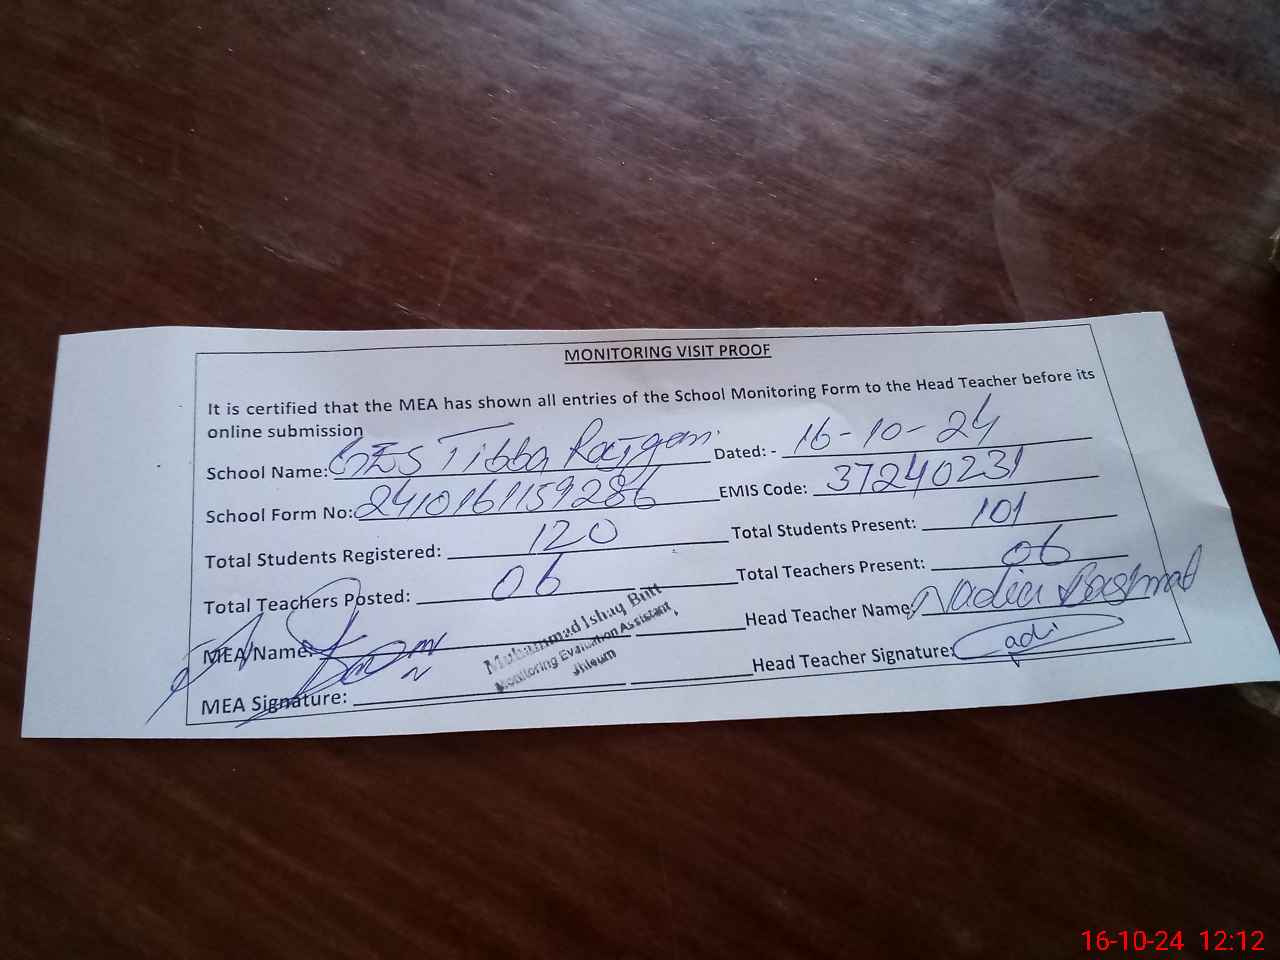 MONITORING VISIT PROOF
It is certified that the MEA has shown all entries of the School Monitoring Form to the Head Teacher before its
online submission
School Name: GES Tibba Rajgan. Dated: - 16-10-24
School Form No: 2410161159286 EMIS Code: 37240231
Total Students Registered: 120 Total Students Present: 101
Total Teachers Posted: 06 Total Teachers Present: 06
MEA Name: Head Teacher Name: Nadia
Muhammad Ishaq Butt
Monitoring Evaluation Assistant,
Jhleum
MEA Signature: Head Teacher Signature:
16-10-24 12:12